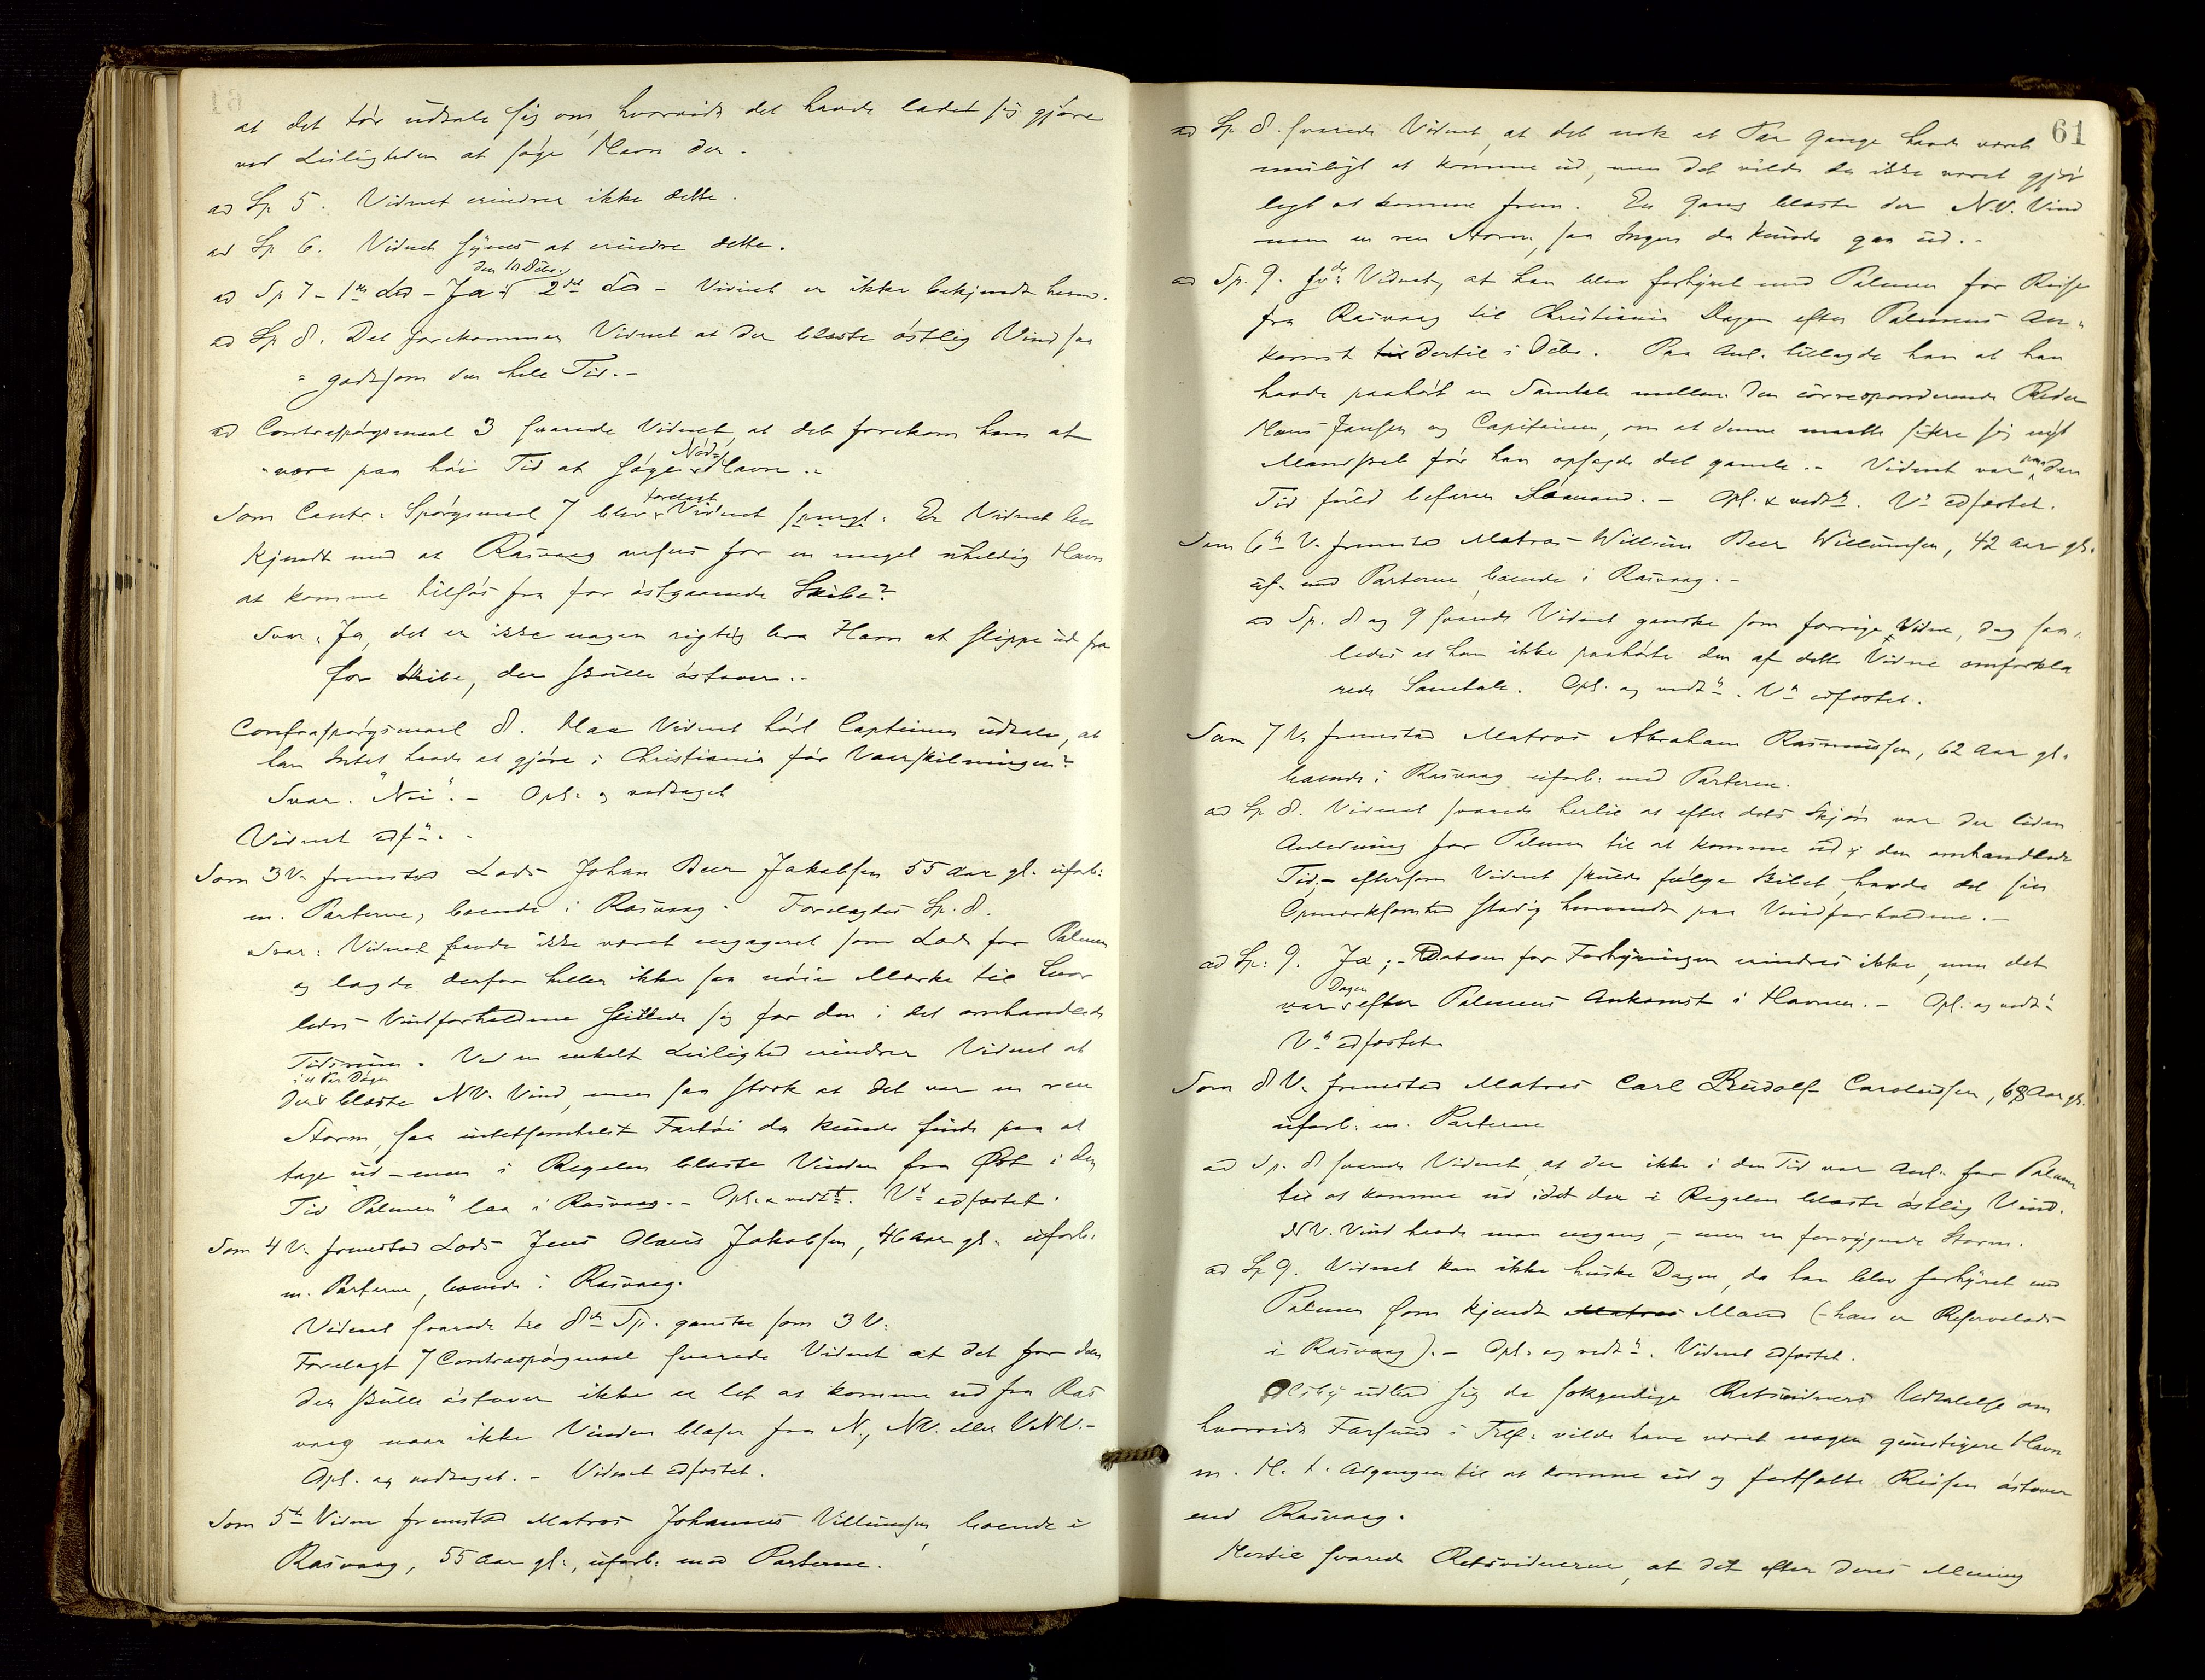 at det tør udtale sig om, hvorvidt det havde ladet sig gjøre
ved Leiligheden at søge Havn der.
ad Sp 5. Vidnet erindrer ikke dette.
ad Sp 6. Vidnet synes at erindre dette.
den 10 Debr.
ad Sp 7 - 1ste Led - Ja 2det Led - Vidnet er ikke bekjendt herm.
ad Sp 8. Det forekommer Vidnet at der blæste østlig Vind saa
godtsom den hele Tid. -
ad Contraspørgsmaal 3 svarede Vidnet, at det forekom ham at
være paa høi Tid at søge Nød-Havn.
Som Contr: Spørgsmaal 7 blev forelagt Vidnet spurgt: Er Vidnet be
kjendt med at Rasvaag ansees for en meget uheldig Havn
at komme tilsøs fra for østgaaende Skibe?
Svar: Ja, det er ikke nogen rigtig bra Havn at slippe ud fra
for Skibe, der skulle østover. -
Contraspørgsmaal 8. Har Vidnet hørt Capteinen udtale, at
han Intet havde at gjøre i Christiania før Vaarskibningen?
Svar. "Nei". - Opl. og vedtaget
Vidnet edf.
Som 3 V. fremstod Lods Johan Beer Jakobsen 55 Aar gl. uforb:
m. Parterne, boende i Rasvaag. Forelagdes Sp. 8.
Svar: Vidnet havde ikke været engageret som Lods for Palmen
og lagde derfor heller ikke saa nøie Mærke til hvor
ledes Vindforholdene stillede sig for den i det omhandlede
Tidsrum. Ved en enkelt Leilighed erindrer Vidnet at
i et Par Dage
der blæste NV. Vind, men saa stærk at det var en ren
Storm, saa intetsomhelst Fartøi da kunde finde paa at
tage ud - men i Regelen blæste Vinden fra Øst i den
Tid "Palmen" laa i Rasvaag. - Opl. & vedtt. Vt edfæstet.
Som 4 V. fremstod Lods Jens Olaus Jakobsen, 46 Aar gl. uforb.
m. Parterne, boende i Rasvaag.
Vidnet svarede til 8de Sp. ganske som 3 V.
Forelagt 7 Contraspørgsmaal svarede Vidnet at det for den
der skulle østover ikke er let at komme ud fra Ras
vaag naar ikke Vinden blæser fra N., NV. eller VNV. -
Opl. og vedtaget. - Vidnet edfæstet.
Som 5te Vidne fremstod Matros Johannes Villumsen, boende i
Rasvaag, 55 Aar gl., uforb. med Parterne.
61
ad Sp 8. svarede Vidnet, at det nok et Par Gange havde været
muligt at komme ud, men det vilde da ikke været gjør
ligt at komme frem. En Gang blæste der N.V. Vind
men en ren Storm, saa Ingen da kunde gaa ud. -
ad Sp. 9. Vidnet, at han blev forhyret med Palmen for Reise
fra Rasvaag til Christiania Dagen efter Palmens An-
komst til dertil i Debr. Paa Anl. tillagde han at han
havde paahørt en Samtale mellem den corresponderende Reder
Hans Jansen og Capteinen, om at denne maatte sikre sig nyt
Mandskab før han opsagde det gamle. - Vidnet var paa den
Tid fuld befaren Sømand. - Opl. & vedt. Vt edfæstet.
Som 6te V. fremstod Matros Willum Beer Willumsen, 42 Aar gl.
uf. med Parterne boende i Rasvaag. -
ad Sp. 8 og 9 svarede Vidnet ganske som forrige Vidne, dog saa-
ledes at han ikke paahørte den af dette Vidne omforkla
rede Samtale. Opl. og vedtt. Vt edfæstet.
Som 7 V. fremstod Matros Abraham Rasmussen, 62 Aar gl.
boende i Rasvaag uforb. med Parterne.
ad Sp 8. Vidnet svarede hertil at efter dets Skjøn var der liden
Anledning for Palmen til at komme ud i den omhandlede
Tid, - eftersom Vidnet skulde følge Skibet havde det sin
Opmærksomhed stadig henvendt paa Vindforholdene. -
ad Sp. 9. Ja; - Datoen for Forhyringen erindres ikke, men det
var Dagen efter Palmens Ankomst i Havnen. - Opl. og vedtt
Vt edfæstet
Som 8 V. fremstod Matros Carl Rudolf Carolusen, 68 Aar gl.
uforb. m. Parterne
ad Sp. 8 svarede Vidnet, at der ikke i den Tid var Anl. for Palmen
til at komme ud idet der i Regelen blæste østlig Vind.
NV. Vind havde man engang, - men en forrygende Storm.
ad Sp 9. Vidnet kan ikke huske Dagen, da han blev forhyret med
Palmen som kjendt Matros Mand (- han er Reservelods
i Rasvaag). - Opl. og vedtt. Vidnet edfæstet.
udbad sig de søkyndige Retsvidners Udtalelse om
hvorvidt Farsund i Tilf: vilde have været nogen gunstigere Havn
m. H. t. Adgangen til at komme ud og fortsætte Reisen østover
end Rasvaag.
Hertil svarede Retsvidnerne, at det efter deres Mening